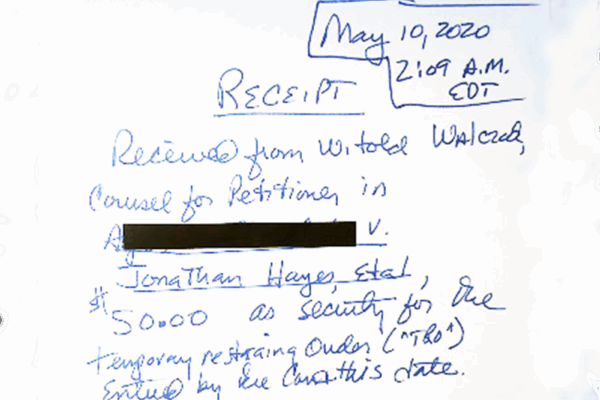 May 10, 2020
2:09 A.M.
EDT
RECEIPT
Received from Witold Walczak,
Counsel for Petitioner in
v.
Jonathan Hayes, Et al,
$50.00 as security for the
temporary restraining Order ("TRO")
Entered by the Court this date.